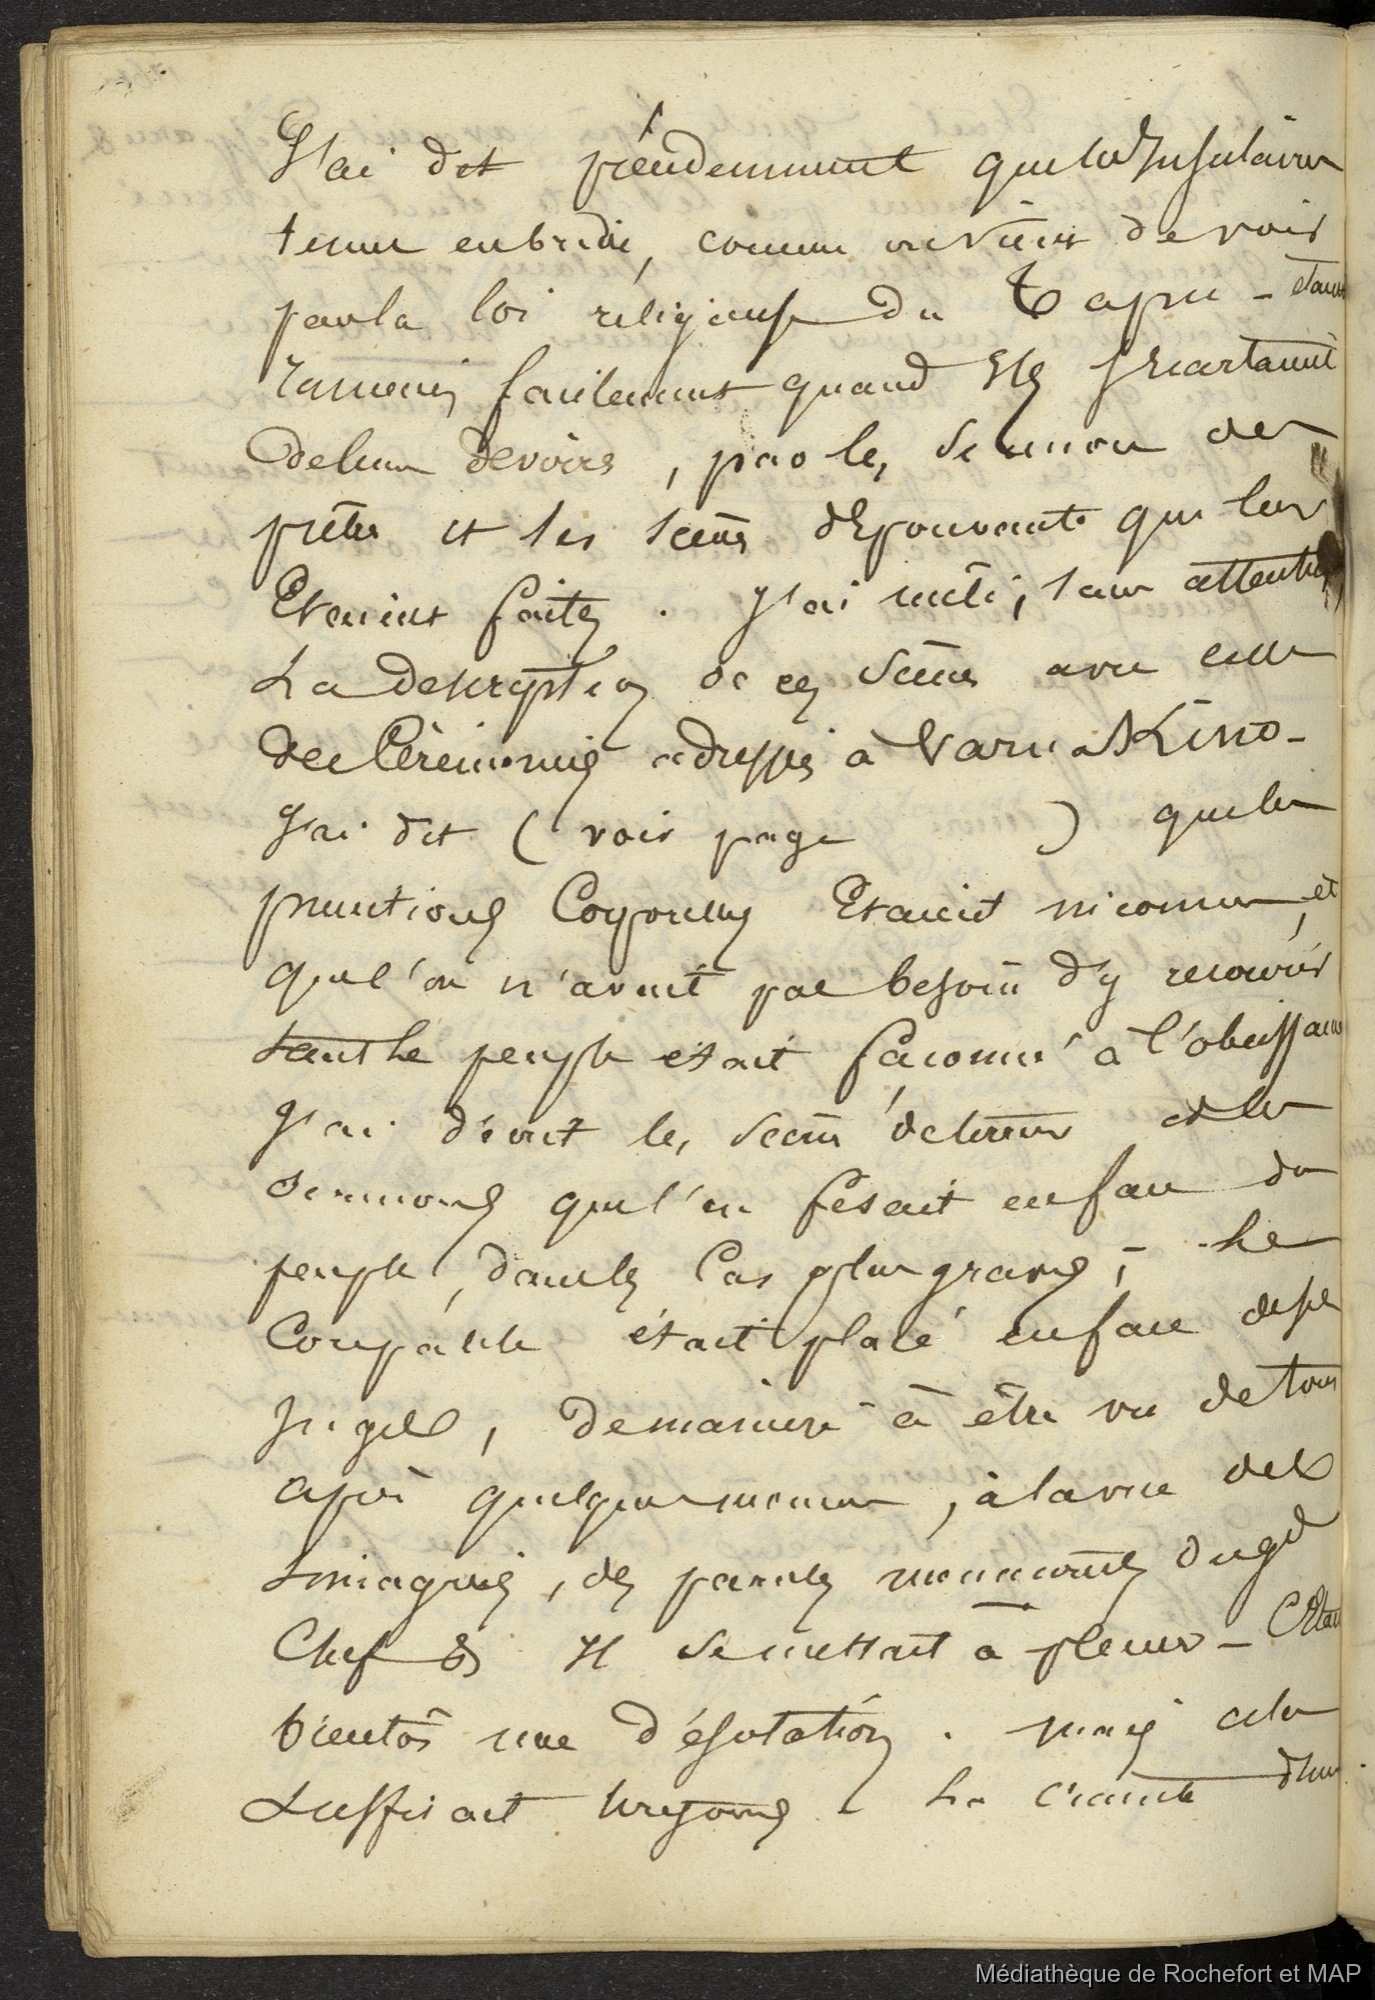 J'ai dit précédemment que les Insulaires
tenus en bride, comme on vient de voir
par la loi religieuse du Tapu - étaient
ramenés facilement quand Ils s'écartaient
de leurs devoirs, par les sermons des
prêtres et les scènes d'Epouvante qui leur
Etaient faites. J'ai mêlé, sans attention
La description de ces scènes avec celle
des Cérémonies adressées à Varua Kino -
J'ai dit (voir page ) que les
punitions Corporelles Etaient inconnues, et
que l'on n'avait pas besoin d'y recourir
tant le peuple était façonné à l'obeissance
J'ai décrit les scènes de terreur et les
sermons que l'on fesait en face du
peuple, dans les Cas plus graves; - Le
Coupable était placé en face de ses
Juges, de manière à être vu de tous
après quelques moments, à la vue des
Simagrées, des paroles menaçantes du gd
Chef & Il se mettait à pleurer - C'Etait
bientôt une désolation. mais cela
suffisait toujours - La crainte d'un
Médiathèque de Rochefort et MAP